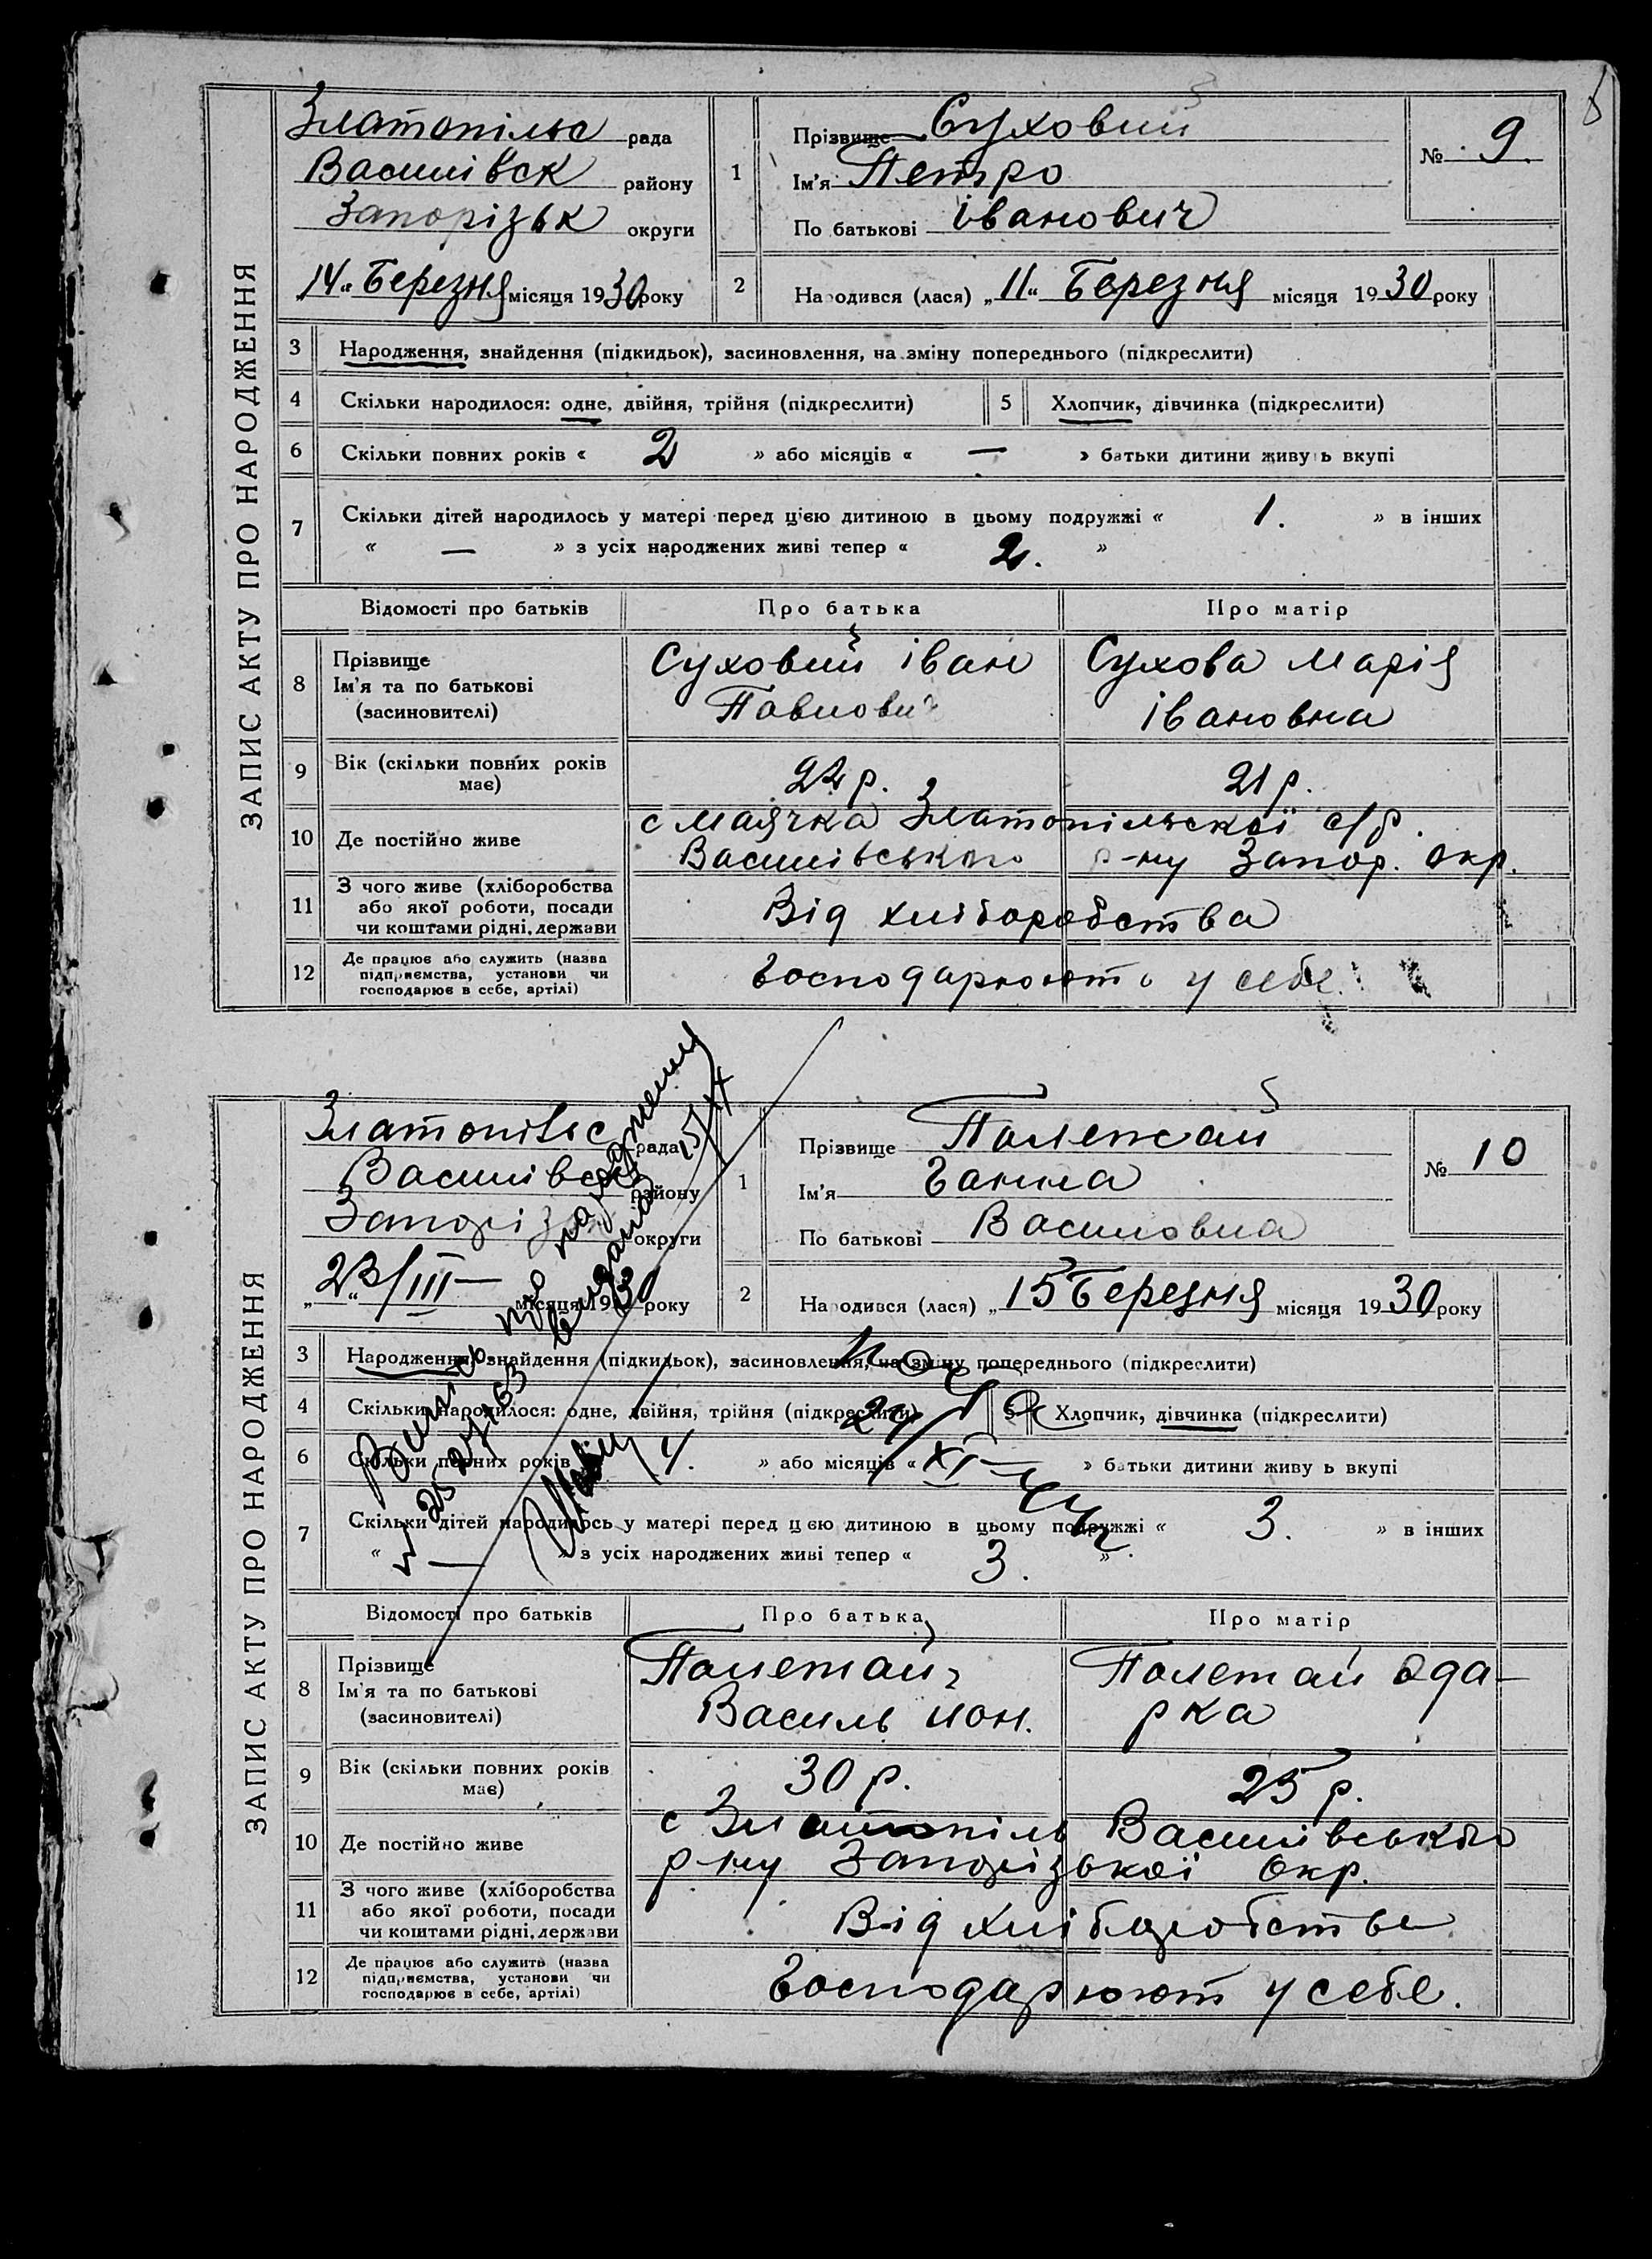 ЗАПИС АКТУ ПРО НАРОДЖЕННЯ
Златопільс рада
Василівск району
Запорізьк округи
14 " Березня місяця 1930 року
1
Прізвище Суховий
Ім'я Петро
По батькові Іванович
№ 9.
2
Народився (лася) „ 11 " Березня місяця 1930 року
3 Народження, знайдення (підкидьок), засиновлення, на зміну попереднього (підкреслити)
4 Скільки народилося: одне, двійня, трійня (підкреслити) 5 Хлопчик, дівчинка (підкреслити)
6 Скільки повних років « 2 » або місяців « — » батьки дитини живуть вкупі
7 Скільки дітей народилось у матері перед цією дитиною в цьому подружжі « 1. » в інших
« — » з усіх народжених живі тепер « 2. »
Відомості про батьків Про батька Про матір
8 Прізвище
Ім'я та по батькові
(засиновителі)
Суховий Іван
Павлович
Сухова Марія
Івановна
9 Вік (скільки повних років
має)
22 р. 21 р.
10 Де постійно живе
с Маячка Златопільської с/р.
Василівського р-ну Запор. Окр.
11 З чого живе (хліборобства
або якої роботи, посади
чи коштами рідні, держави
Від хліборобства
12 Де працює або служить (назва
підприємства, установи чи
господарює в себе, артілі)
Господарюють у себе.
ЗАПИС АКТУ ПРО НАРОДЖЕННЯ
Златопільс рада
Василівск району
Запорізьк округи
„ 23/III — місяця 1930 року
1
Прізвище Полежай
Ім'я Ганна
По батькові Василовна
№ 10
2
Народився (лася) „ 15 Березня місяця 1930 року
3 Народження, знайдення (підкидьок), засиновлення, на зміну попереднього (підкреслити)
4 Скільки народилося: одне, двійня, трійня (підкреслити) 5 Хлопчик, дівчинка (підкреслити)
6 Скільки повних років 4. » або місяців « » батьки дитини живуть вкупі
7 Скільки дітей народилось у матері перед цією дитиною в цьому подружжі « 3. » в інших
« — » з усіх народжених живі тепер « 3. »
про народження
видана
Відомості про батьків Про батька Про матір
8 Прізвище
Ім'я та по батькові
(засиновителі)
Полежай
Василь Йон.
Полежай Ода-
рка
9 Вік (скільки повних років
має)
30 р. 25 р.
10 Де постійно живе
с Златопіль Василівського
р-ну Запорізької Окр.
11 З чого живе (хліборобства
або якої роботи, посади
чи коштами рідні, держави
Від хліборобства
12 Де працює або служить (назва
підприємства, установи чи
господарює в себе, артілі)
Господарюют у себе.